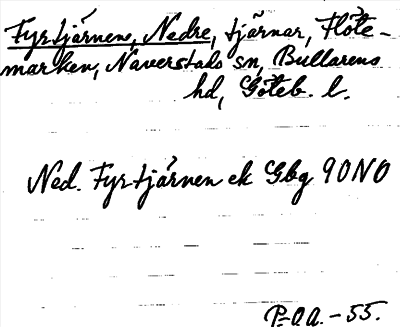 Fyrtjärnen, Nedre, tjärnar, Flöte-
marken, Naverstads sn, Bullarens
hd, Göteb. l.
Ned. Fyrtjärnen ek Gbg 90NO
P-QA.-55.